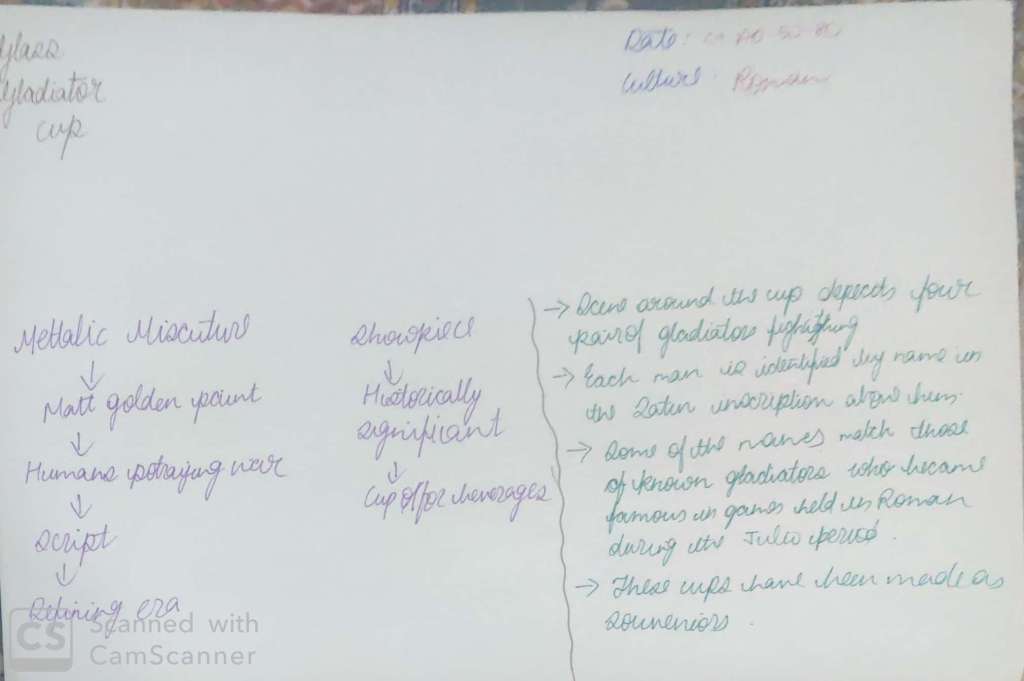 Glass
Gladiator
cup
Date: ca AD 50-80
Culture: Roman
Mettalic Miscuture
↓
Matt golden paint
↓
Humans potraying war
↓
Script
↓
Defining era
Showpiece
↓
Historically
significant
↓
Cup for beverages
→ Scene around the cup depects four
pair of gladiators fighting
→ Each man is identified by name in
the Latin inscription above him.
→ Some of the names match those
of known gladiators who became
famous in games held in Roman
during the Julio period.
→ These cups have been made as
souveniors.
CS Scanned with
CamScanner